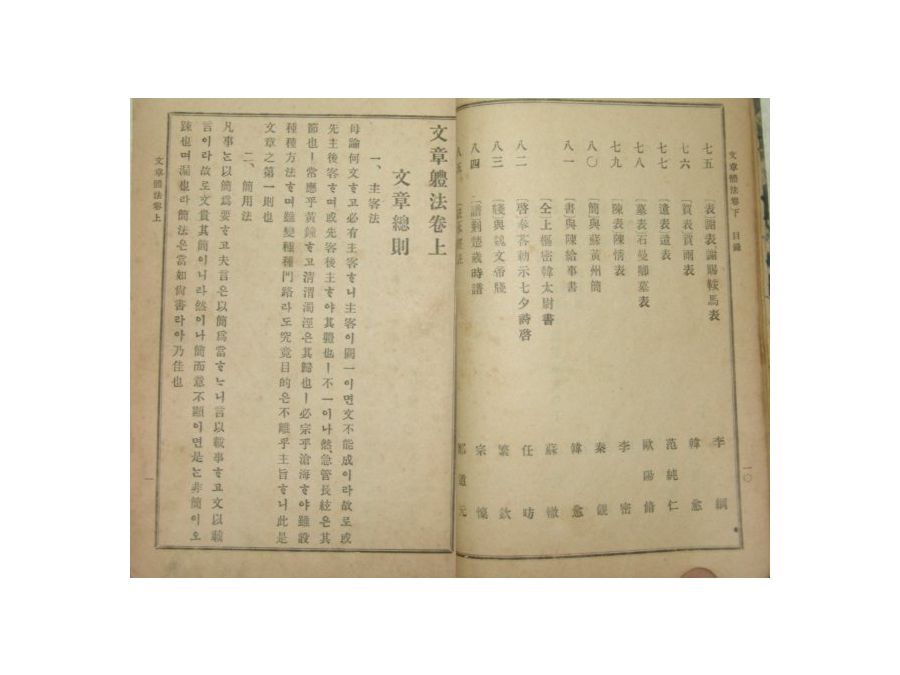 文章體法卷下 目錄
一〇
七五 (表)謝表謝賜鞍馬表 李綱
七六 (賀表)賀雨表 韓愈
七七 (遺表)遺表 范純仁
七八 (墓表)石曼卿墓表 歐陽脩
七九 (陳表)陳情表 李密
八〇 (簡)與蘇黃州簡 秦觀
八一 (書)與陳給事書 韓愈
(仝)上樞密韓太尉書 蘇轍
八二 (啓)奉荅勅示七夕詩啓 任昉
八三 (牋)與魏文帝牋 繁欽
八四 (譜)荊楚歲時譜 宗懍
八五 道元
文章軆法卷上
文章總則
一、主客法
毋論何文ᄒᆞ고必有主客ᄒᆞ니主客이闕一이면文不能成이라故로或
先主後客ᄒᆞ며或先客後主ᄒᆞ야其軆也ㅣ不一이나然、急管長絃은其
節也ㅣ常應乎黃鐘ᄒᆞ고淸渭濁涇은其歸也ㅣ必宗乎滄海ᄒᆞ야雖設
種種方法ᄒᆞ며雖變種種門路라도究竟目的은不離乎主旨ᄒᆞ니此是
文章之第一則也
二、簡用法
凡事ᄂᆞᆫ以簡爲要ᄒᆞ고夫言은以簡爲當ᄒᆞᄂᆞ니言以載事ᄒᆞ고文以載
言이라故로文貴其簡이니라然이나簡而意不顯이면是ᄂᆞᆫ非簡이오
踈也며漏也라簡法은當如尙書라야乃佳也
文章軆法卷上
一